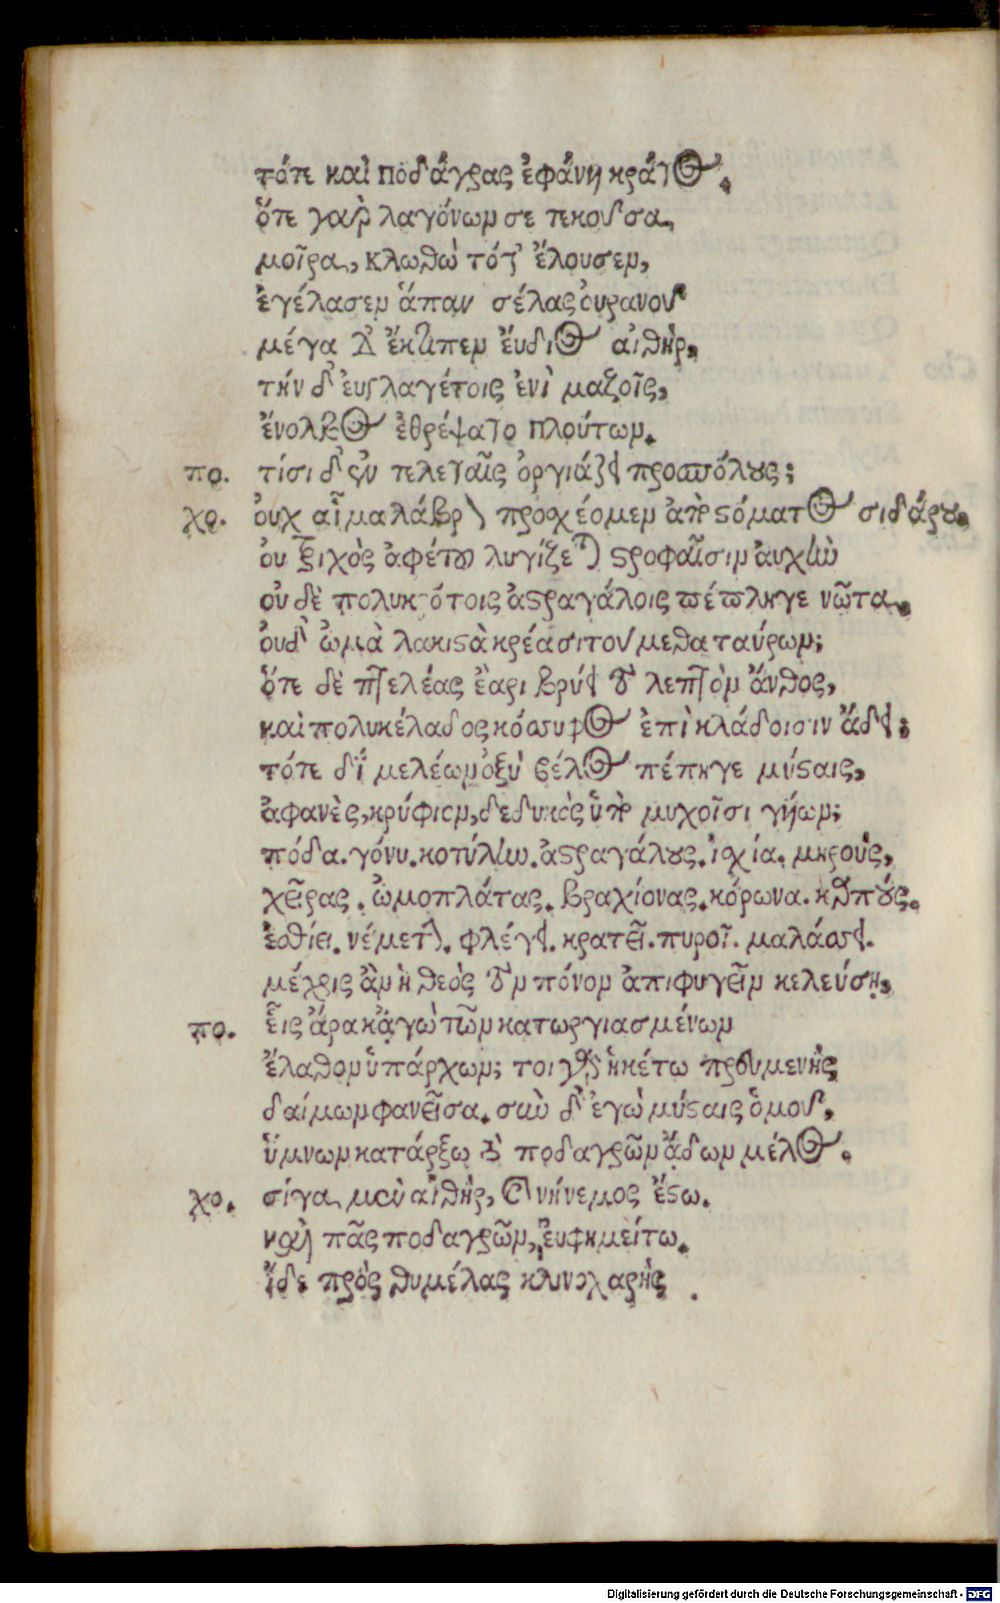 τότε καὶ ποδάγρας ἐφάνη κράτος.
ὅτε γαρ λαγόνων σε τεκοῦσα,
μοῖρα, κλωθὼ τότ' ἔλουσεν,
ἐγέλασεν ἅπαν σέλας ὀυρανοῦ
μέγα δ' ἔκτυπεν ἔυδιος αἰθὴρ,
τήν δ' ἐυγλαγέτοις ἐνὶ μαζοῖς,
ἔνολβος ἐθρέψατο πλούτων.
πο. τίσι δ' οὖν τελεταῖς ὀργιάζει προσπόλους;
χο. ὀυχ αἷμα λάβρον προχέομεν ἀπὸ στόματος σιδάρου.
ὀυ τριχὸς ἀφέτου λυγίζεται στροφαῖσιν ἀυχὴν
οὐ δὲ πολυκρότοις ἀστραγάλοις πέπληγε νῶτα.
ὀυδ' ὠμὰ λακιστὰ κρέα σιτούμεθα ταύρων;
ὅτε δὲ πτελέας ἔαρι βρύει τὸ λεπτὸν ἄνθος,
καὶ πολυκέλαδος κόσσυφος ἐπὶ κλάδοισιν ἄδει;
τότε διὰ μελέων ὀξὺ βέλος πέπηγε μύσταις,
ἀφανὲς, κρύφιον, δεδυκὸς ὑπὸ μυχοῖσι γήων;
πόδα. γόνυ. κοτύλην. ἀστραγάλους. ἰσχία. μηροὺς,
χεῖρας. ὠμοπλάτας. βραχίονας. κόρωνα. καρπούς.
ἐσθίει. νέμεται. φλέγει. κρατεῖ. πυροῖ. μαλάσσει.
μέχρις ἂν ἡ θεὸς τὸν πόνον ἀπιφυγεῖν κελεύση,
πο. εἷς ἄρα κἀγὼ τῶν κατωργιασμένων
ἔλαθον ὑπάρχων; τοιγὰρ ἡκέτω πρευμενὴς
δαίμων φανεῖσα. σὺν δ' ἐγὼ μύσταις ὁμοῦ,
ὕμνων κατάρξω τὸ ποδαγρῶν ἄδων μέλος.
χο. σίγα μὲν αἰθὴρ, καὶ νήνεμος ἔστω.
καὶ πᾶς ποδαγρῶν, ἐυφημείτω.
ἴδε πρὸς θυμέλας κλινοχαρὴς
Digitalisierung gefördert durch die Deutsche Forschungsgemeinschaft - DFG